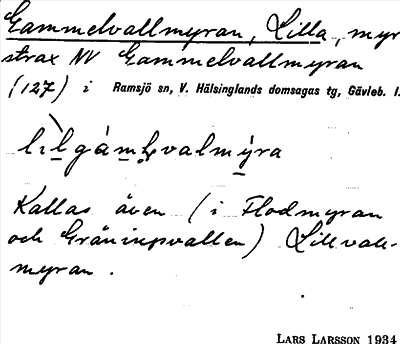 Gammelvallmyran, Lilla, myr
strax NV Gammelvallmyran
(127) i Ramsjö sn, V. Hälsinglands domsagas tg, Gävleb. l.
Kallas även (i Flodmyran
och                ) Lillvall-
myran.
LARS LARSSON 1934